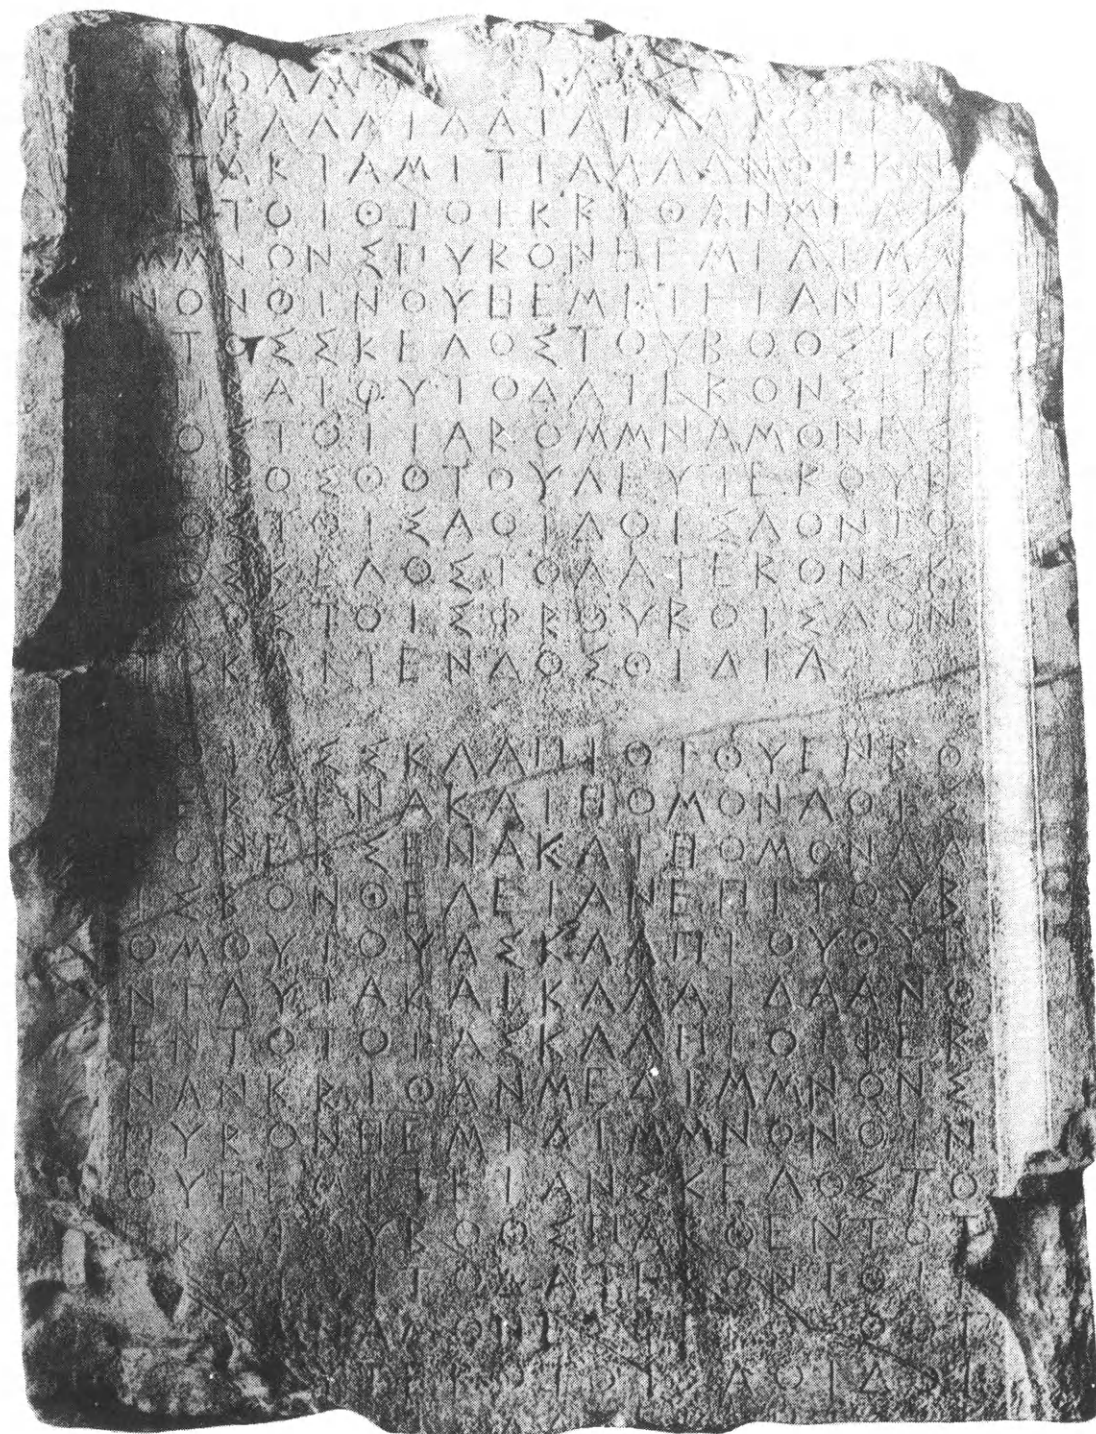 ΚΑΛΑΙΔΑΤΑΙΛΑΤΟΙΚΑ
ΙΤΑΡΤΑΜΙΤΙΑΛΛΑΝΦΕΡΝ
ΑΝΤΟΙΘΙΟΙΚΡΙΘΑΝΜΕΔΙ
ΜΜΝΟΝΣΠΥΡΟΝΗΕΜΙΔΙΜΜ
ΝΟΝΟΙΝΟΥΗΕΜΙΤΕΙΑΝΚΑ
ΙΤΟΣΣΚΕΛΟΣΤΟΥΒΟΟΣΤΟ
ΥΠΡΑΤΟΥΤΟΔΑΤΕΡΟΝΣΚΕ
ΛΟΣΤΟΙΙΑΡΟΜΜΝΑΜΟΝΕΣ
ΦΕΡΟΣΘΟΤΟΥΔΕΥΤΕΡΟΥΒ
ΟΟΣΤΟΙΣΑΟΙΔΟΙΣΔΟΝΤΟ
ΤΟΣΚΕΛΟΣΤΟΔΑΤΕΡΟΝΣΚ
ΕΛΟΣΤΟΙΣΦΡΟΥΡΟΙΣΔΟΝ
ΤΟΚΑΙΤΕΝΔΟΣΘΙΔΙΑ
ΤΟΙΑΣΣΚΛΑΠΙΟΙΘΥΕΝΒΟ
ΝΕΡΣΕΝΑΚΑΙΗΟΜΟΝΑΟΙΣ
ΒΟΝΕΡΣΕΝΑΚΑΙΗΟΜΟΝΑΑ
ΙΣΒΟΝΘΕΛΕΙΑΝΕΠΙΤΟΥΒ
ΟΜΟΥΤΟΥΑΣΚΛΑΠΙΟΥΘΥΕ
ΝΤΑΥΤΑΚΑΙΚΑΛΑΙΔΑΑΝΘ
ΕΝΤΟΤΟΙΑΣΚΛΑΠΙΟΙΦΕΡ
ΝΑΝΚΡΙΘΑΝΜΕΔΙΜΜΝΟΝΣ
ΠΥΡΟΝΗΕΜΙΔΙΜΜΝΟΝΟΙΝ
ΟΥΗΕΜΙΤΕΙΑΝΣΚΕΛΟΣΤΟ
ΠΡΑΤΟΥΒΟΟΣΠΑΡΘΕΝΤΟΤ
ΟΙΘΙΟΙΤΟΔΑΤΕΡΟΝΤΟΙΙ
ΑΟΙΔΟΙ